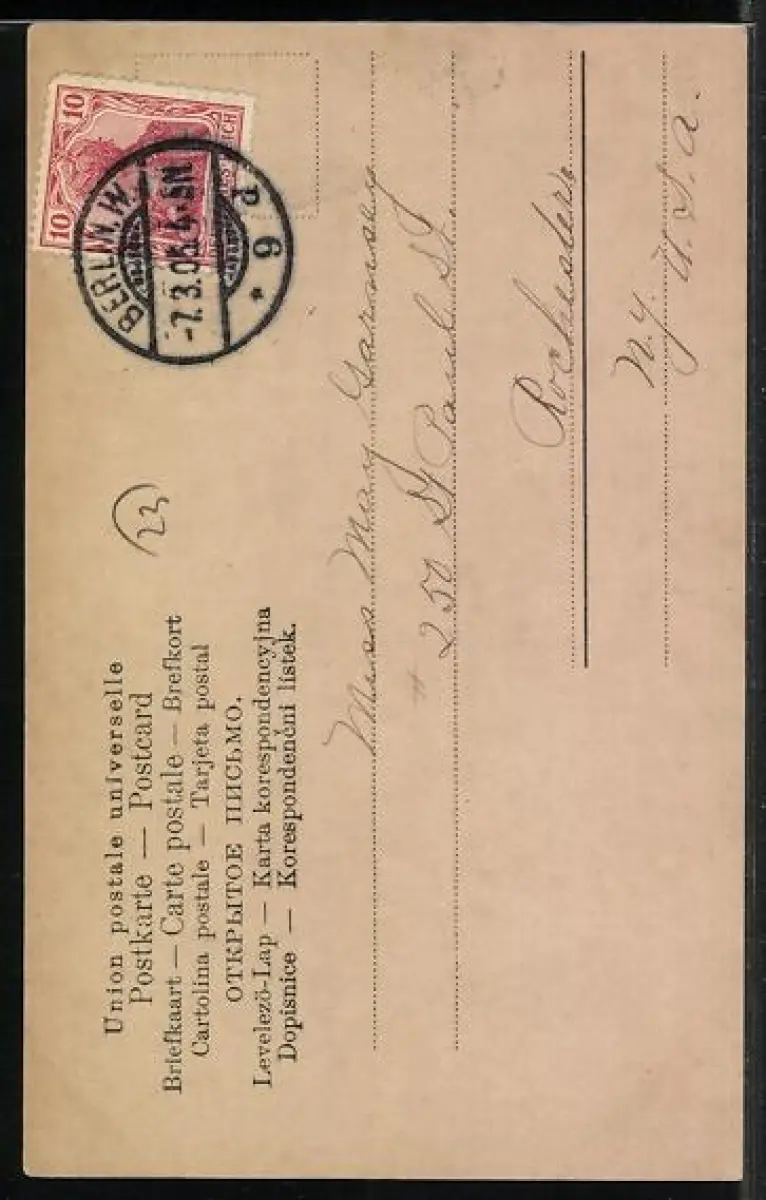 Union postale universelle
Postkarte — Postcard
Briefkaart — Carte postale — Brefkort
Cartolina postale — Tarjeta postal
ОТКРЫТОЕ ПИСЬМО.
Levelező-Lap — Karta korespondencyjna
Dopisnice — Korespondenční lístek.
23
10 10
REICH
BERLIN. W.
-7.3.05.4-5N.
* 9 d
Miss May
250 St Paul St.
Rochester
N.Y. U.S.A.